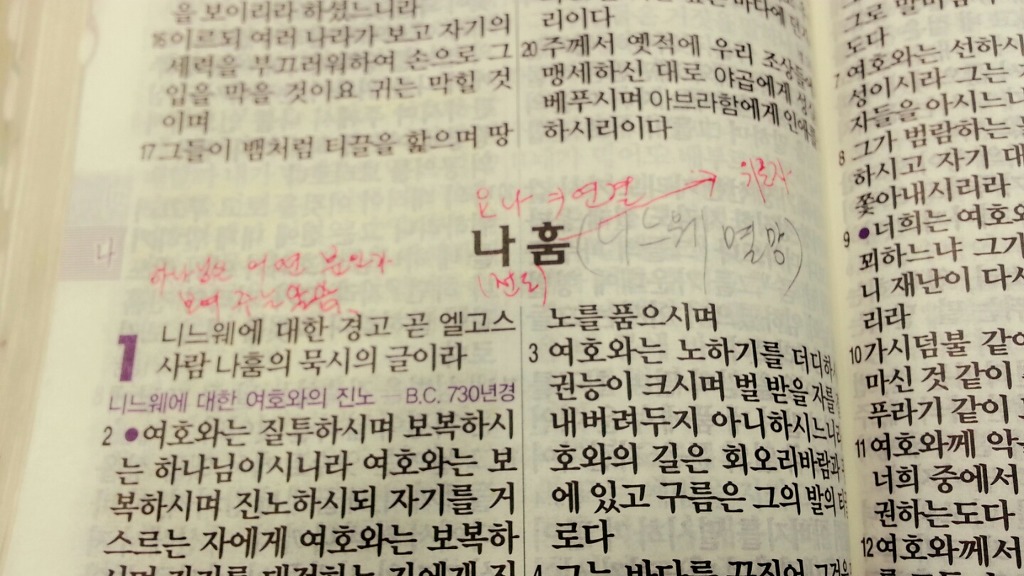 을 보이리라 하셨느니라
16 이르되 여러 나라가 보고 자기의
세력을 부끄러워하여 손으로 그
입을 막을 것이요 귀는 막힐 것
이며
17 그들이 뱀처럼 티끌을 핥으며 땅
리이다
20 주께서 옛적에 우리 조상들에게
맹세하신 대로 야곱에게
베푸시며 아브라함에게
하시리이다
요나 연결 → 위로자
나훔 (니느웨 멸망)
나
1 니느웨에 대한 경고 곧 엘고스
사람 나훔의 묵시의 글이라
니느웨에 대한 여호와의 진노 — B.C. 730년경
2 ●여호와는 질투하시며 보복하시
는 하나님이시니라 여호와는 보
복하시며 진노하시되 자기를 거
스르는 자에게 여호와는 보복하
노를 품으시며
3 여호와는 노하기를 더디하
권능이 크시며 벌 받을 자를
내버려두지 아니하시느니라
호와의 길은 회오리바람과
에 있고 구름은 그의 발의
로다
4 그는 바다를 꾸짖어
도다
7 여호와는 선하시
성이시라 그는
자들을 아시느니
8 그가 범람하는
하시고 자기 대
쫓아내시리라
9 ●너희는 여호
꾀하느냐 그가
니 재난이 다시
리라
10 가시덤불 같이
마신 것 같이
푸라기 같이
11 여호와께 악
너희 중에서
권하는도다
12 여호와께서